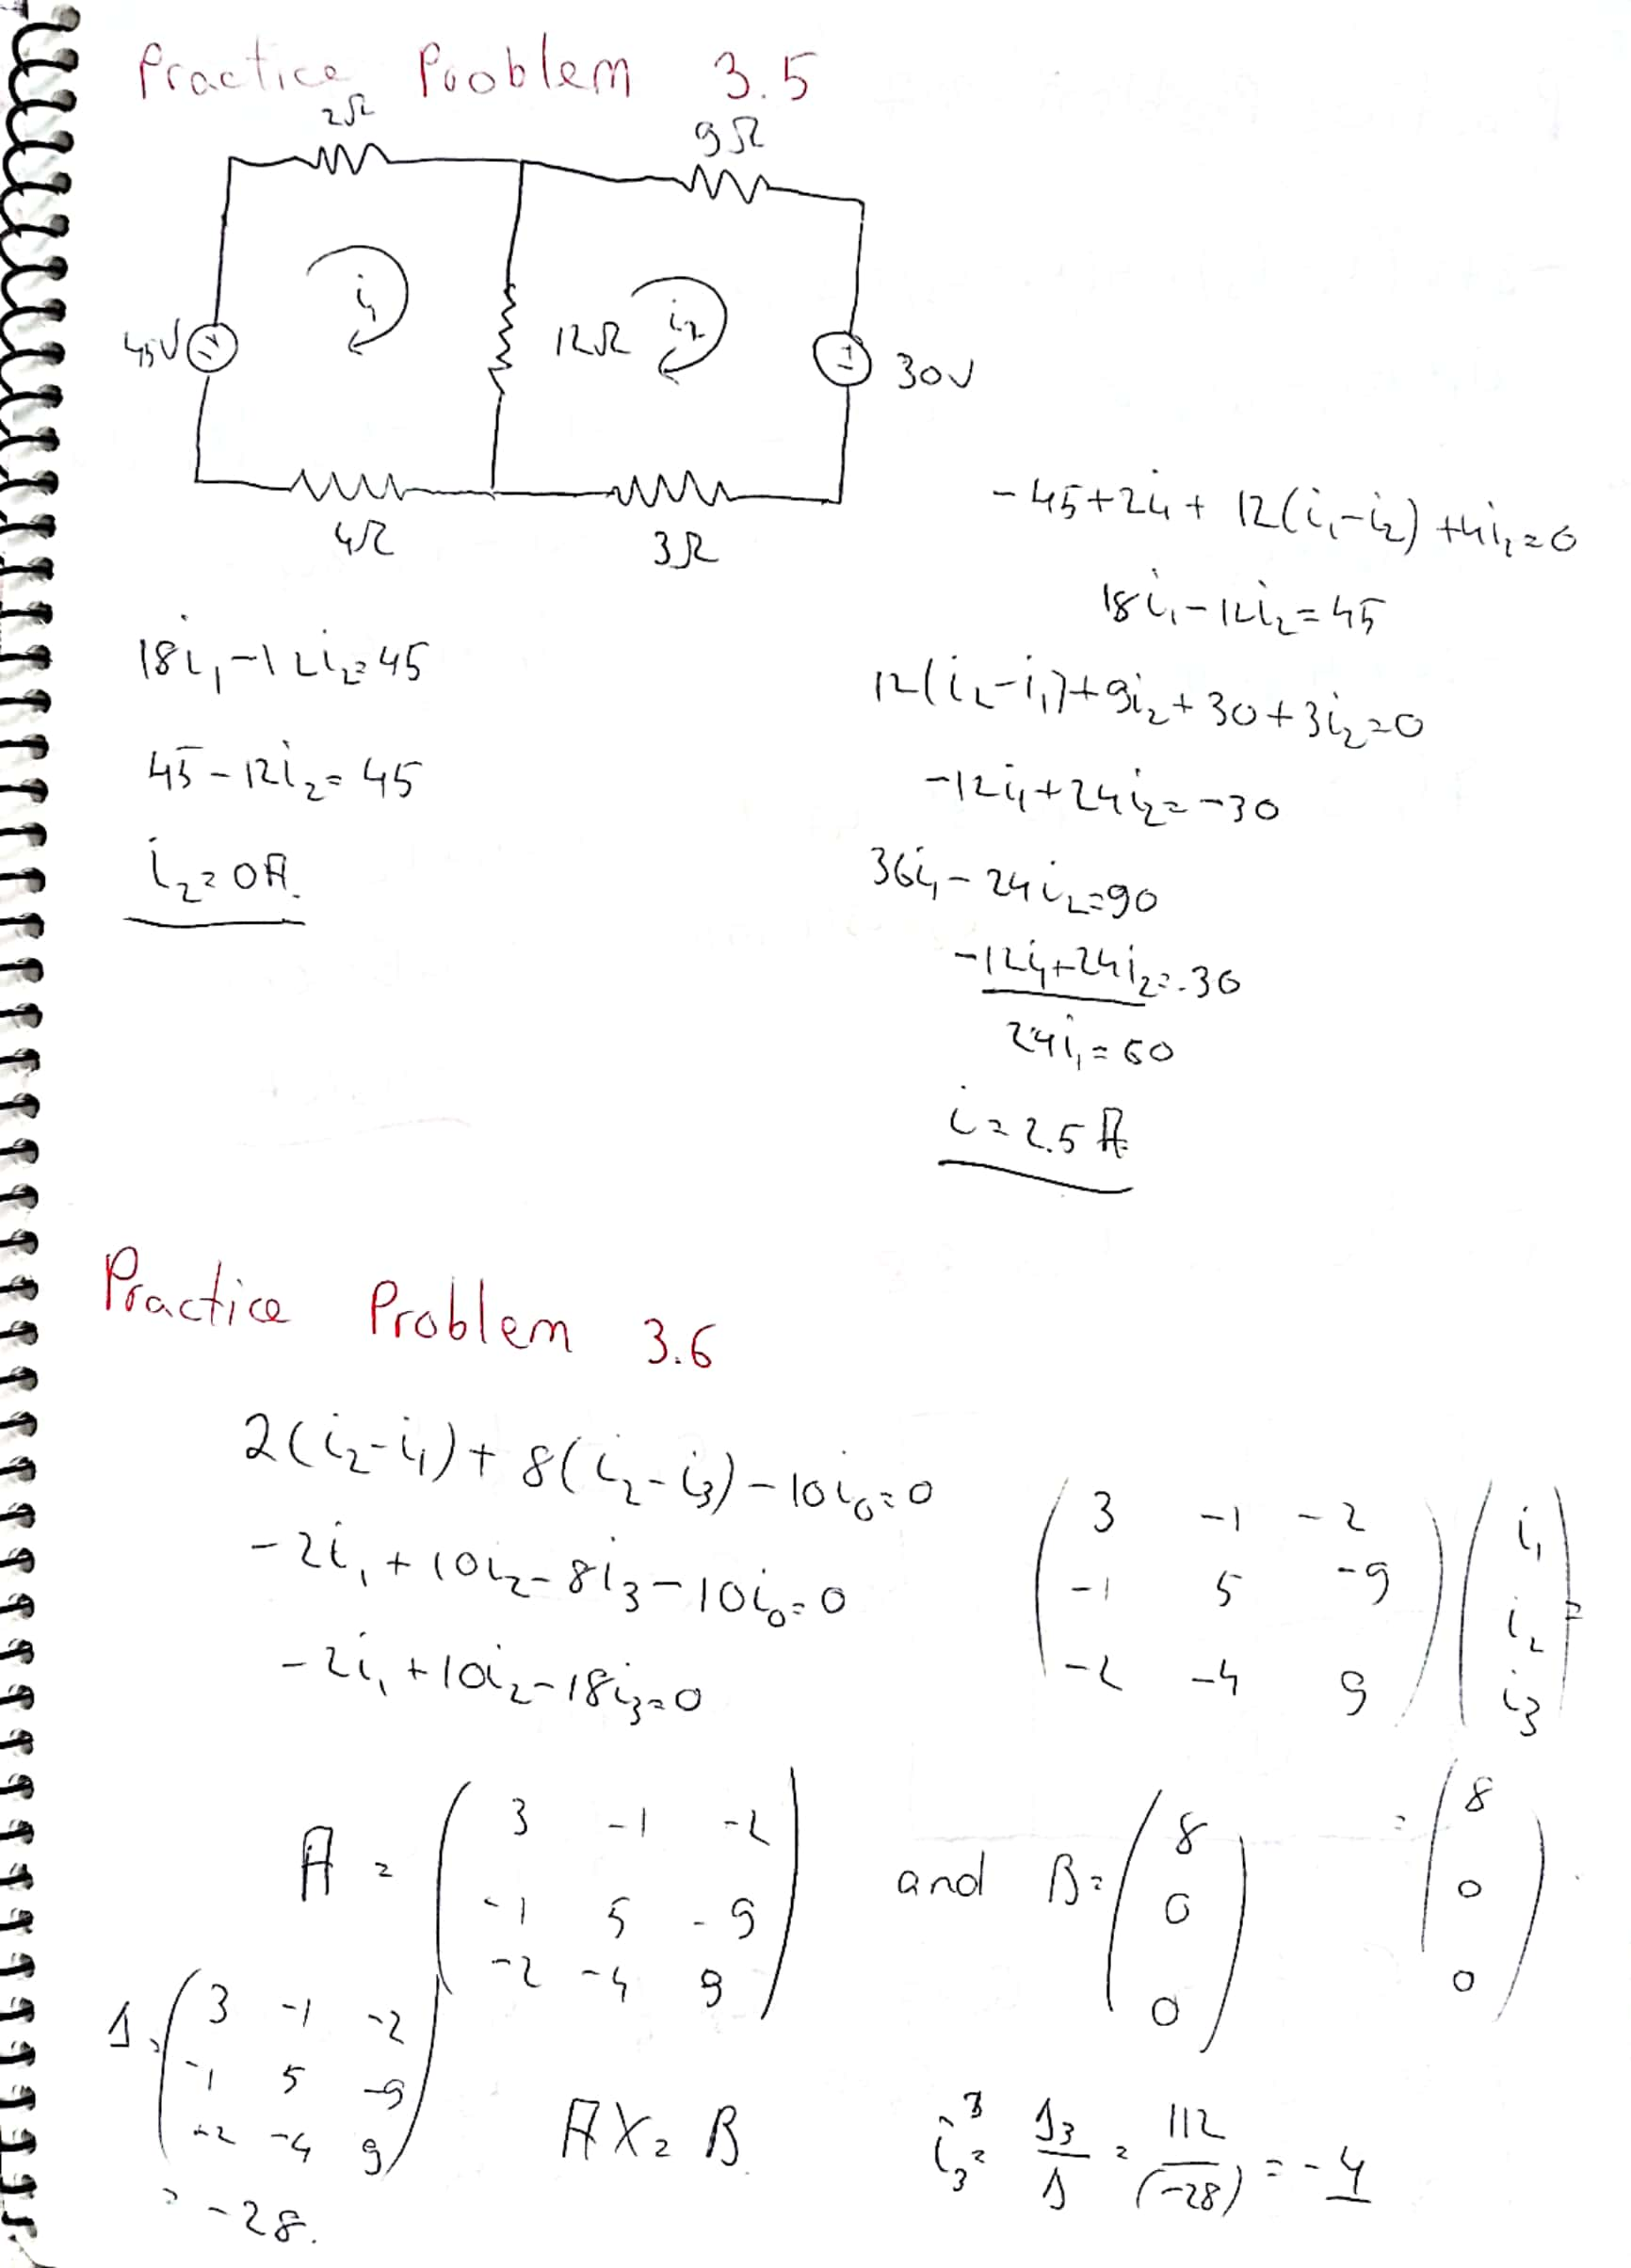 Practice Problem 3.5
2Ω
9Ω
i₁
45V
12Ω
i₂
30V
4Ω
3Ω
-45+2i₁+ 12(i₁-i₂) +4i₁=0
18i₁-12i₂=45
12(i₂-i₁)+9i₂+30+3i₂=0
-12i₁+24i₂=-30
36i₁-24i₂=90
-12i₁+24i₂=-30
24i₁=60
i=2.5 A
18i₁-12i₂=45
45-12i₂=45
i₂=0A.
Practice Problem 3.6
2(i₂-i₁)+8(i₂-i₃)-10i₀=0
-2i₁+10i₂-8i₃-10i₀=0
-2i₁+10i₂-18i₃=0
3 -1 -2 i₁
-1 5 -9 i₂ =
-2 -4 9 i₃
= 8
0
0
A = 3 -1 -2
-1 5 -9
-2 -4 9
and B= 8
0
0
Δ= 3 -1 -2
-1 5 -9
-2 -4 9
= -28.
AX=B
i₃= Δ₃/Δ = 112/(-28) = -4